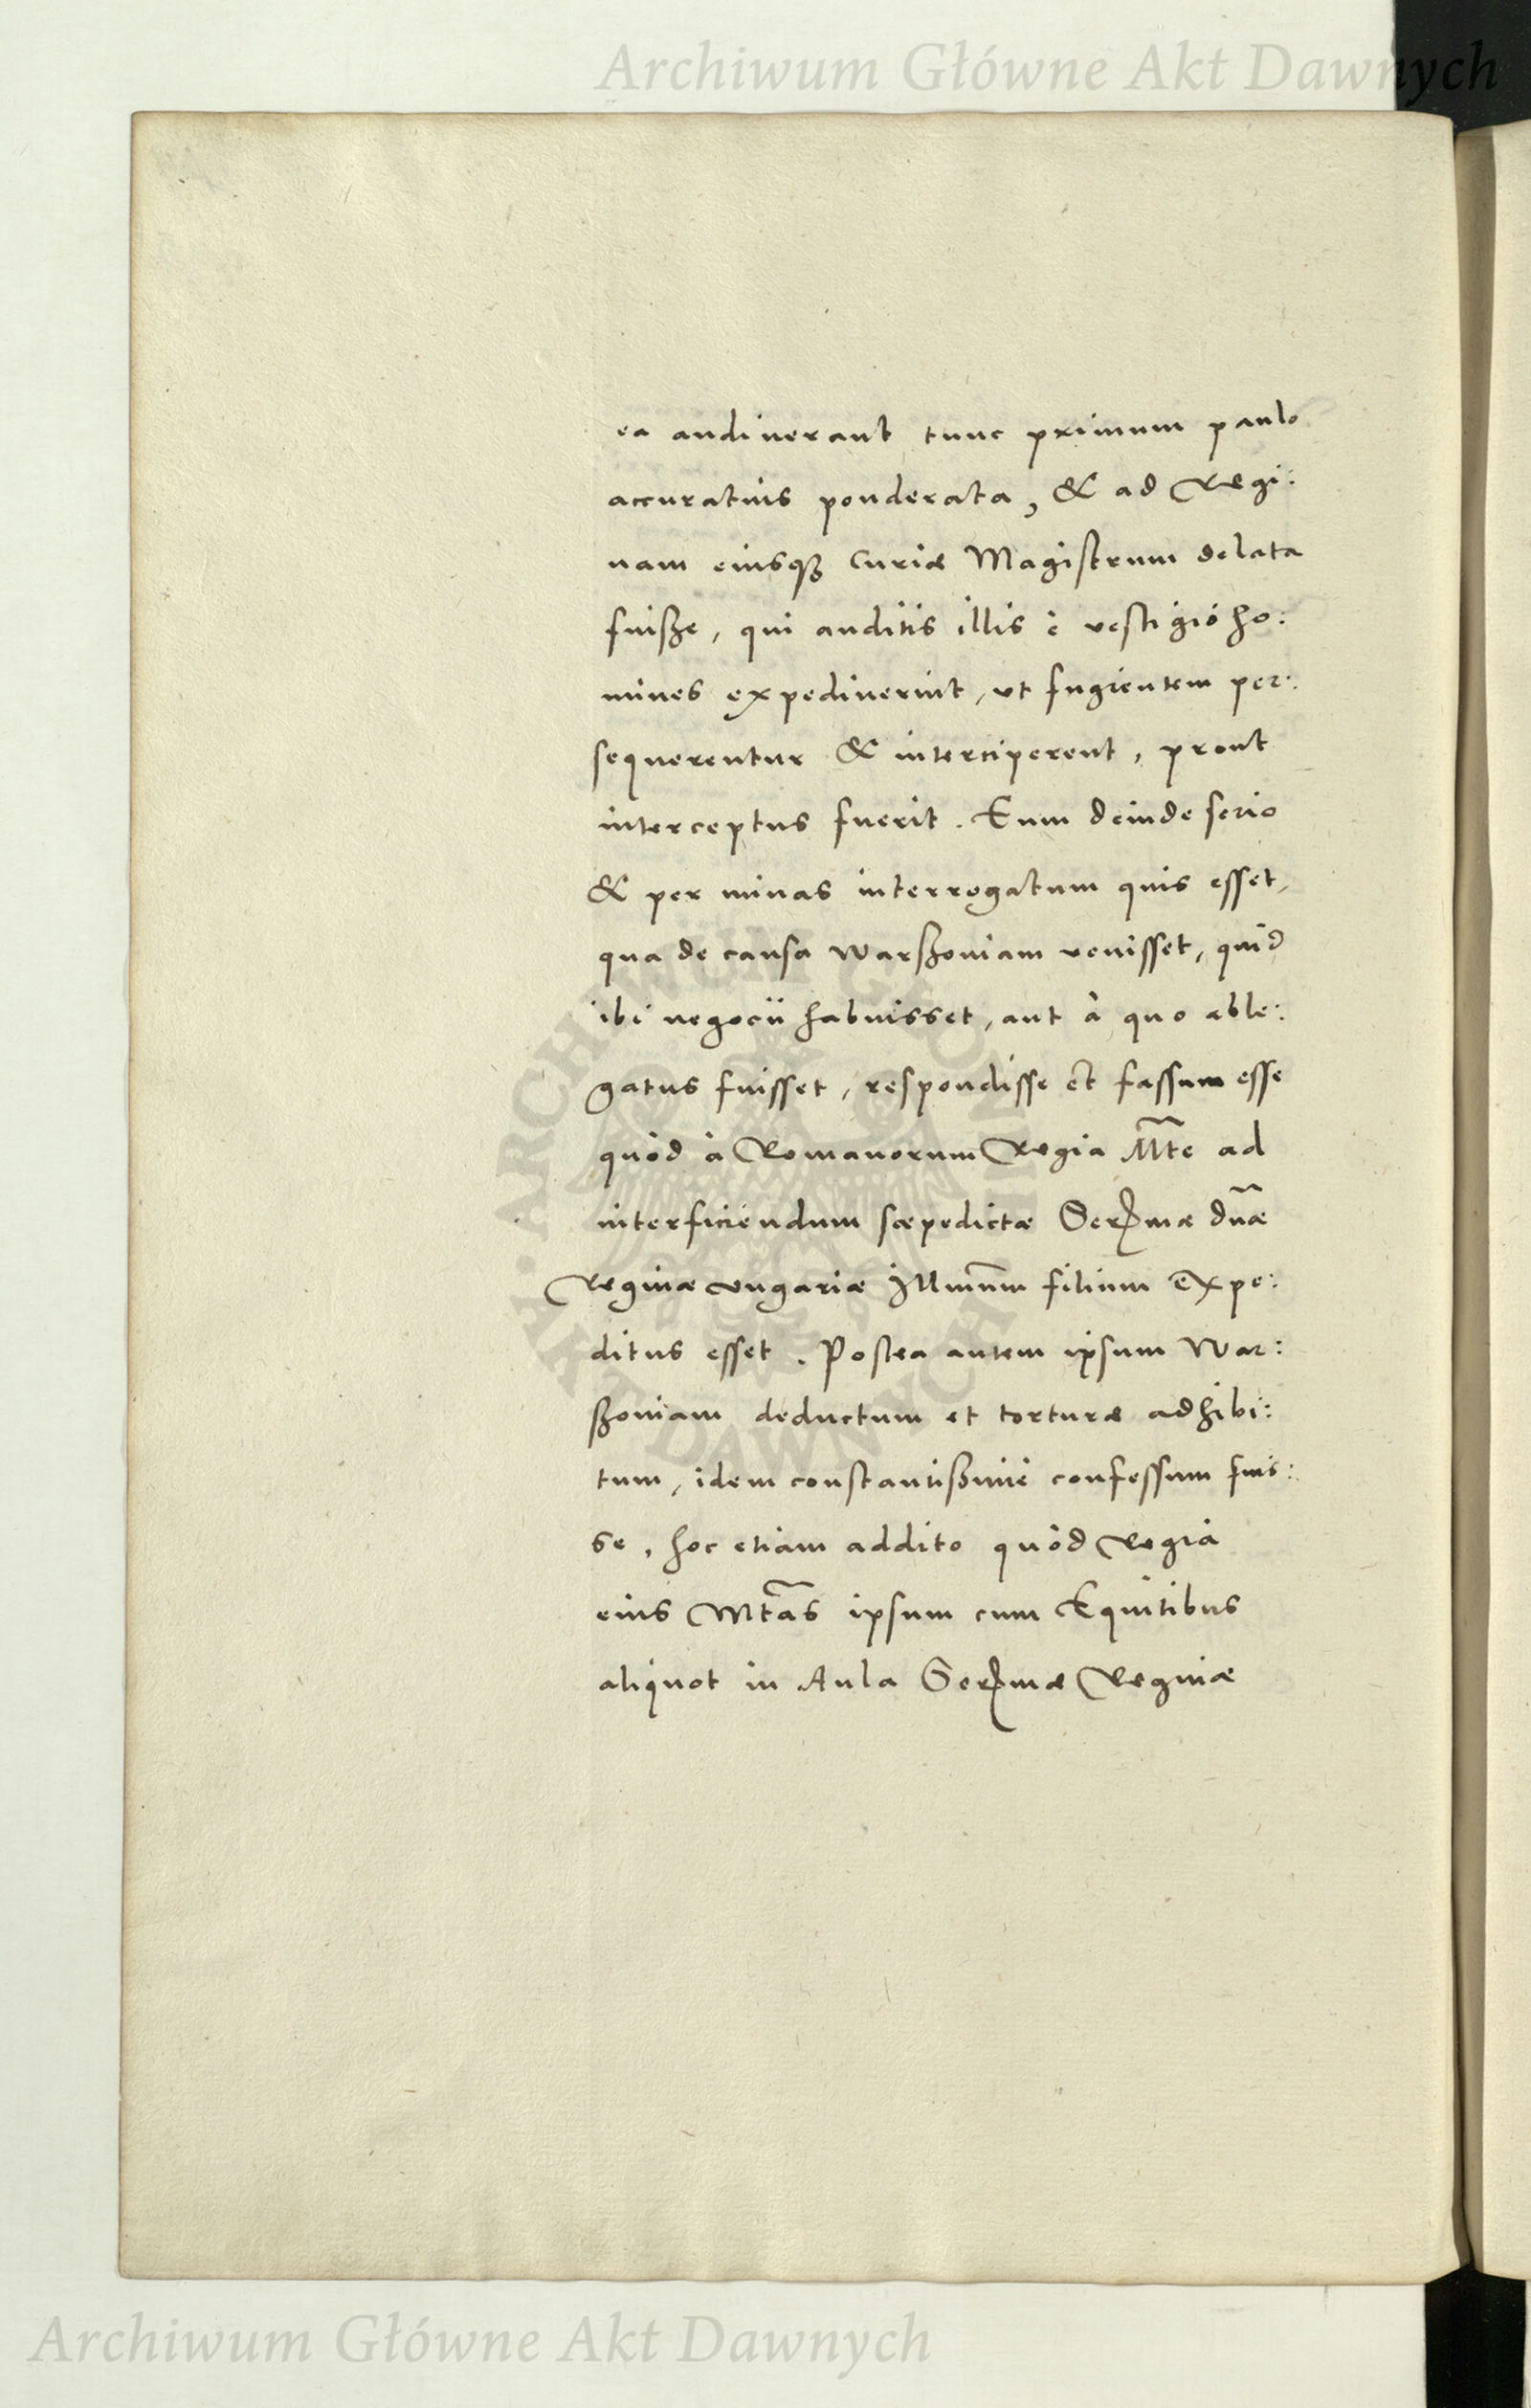 Archiwum Główne Akt Dawnych
ea audiuerant tunc primum paulo
accuratius ponderata, & ad Regi:
nam eiusq3 Curiæ Magistrum delata
fuisze, qui auditis illis è vestigió ho:
mines expediuerint, vt fugientem per:
sequerentur & interciperent, prout
interceptus fuerit. Eum deinde serio
& per minas interrogatum quis esset,
qua de causa Warszouiam venisset, quid
ibi negocii habuisset, aut à quo able:
gatus fuisset, respondisse et fassum esse
quòd à Romanorum Regia Mte ad
interficiendum sæpedictæ Sermæ dnæ
Reginæ vngariæ Illmum filium expe:
ditus esset. Postea autem ipsum War:
szouiam deductum et torturæ adhibi:
tum, idem constantissimè confessum fuis:
se, hoc etiam addito quòd Regia
eius Mtas ipsum cum Equitibus
aliquot in Aula Sermæ Reginæ
ARCHIWUM GŁÓWNE AKT DAWNYCH
Archiwum Główne Akt Dawnych